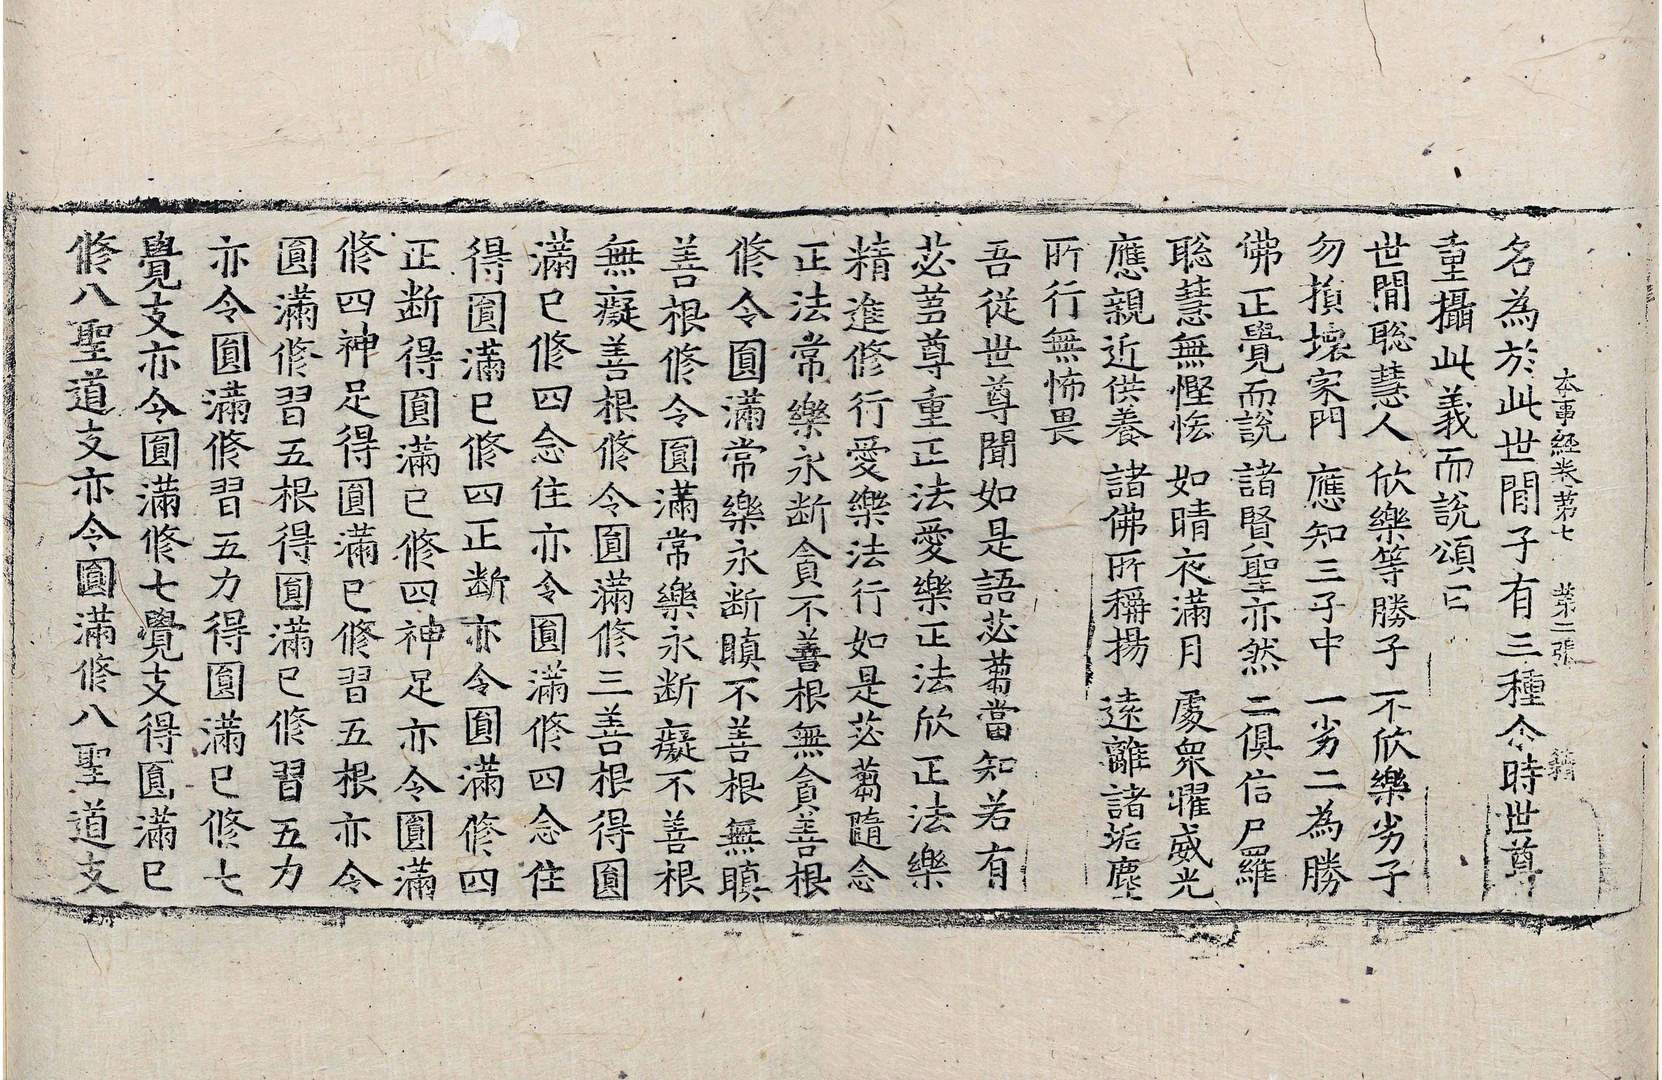 本事經卷第七 第二張 籍
名為於此世間子有三種尒時世尊
重攝此義而說頌曰
世間聡慧人 欣樂等勝子 不欣樂劣子
勿損壞家門 應知三子中 一劣二為勝
佛正覺而說 諸賢聖亦然 二俱信尸羅
聡慧無慳悋 如晴夜滿月 處衆曜威光
應親近供養 諸佛所稱揚 遠離諸垢塵
所行無怖畏
吾從世尊聞如是語苾蒭當知若有
苾蒭尊重正法愛樂正法欣正法樂
精進修行愛樂法行如是苾蒭隨念
正法常樂永断貪不善根無貪善根
修令圓滿常樂永断瞋不善根無瞋
善根修令圓滿常樂永断癡不善根
無癡善根修令圓滿修三善根得圓
滿已修四念住亦令圓滿修四念住
得圓滿已修四正断亦令圓滿修四
正断得圓滿已修四神足亦令圓滿
修四神足得圓滿已修習五根亦令
圓滿修習五根得圓滿已修習五力
亦令圓滿修習五力得圓滿已修七
覺支亦令圓滿修七覺支得圓滿已
修八聖道支亦令圓滿修八聖道支